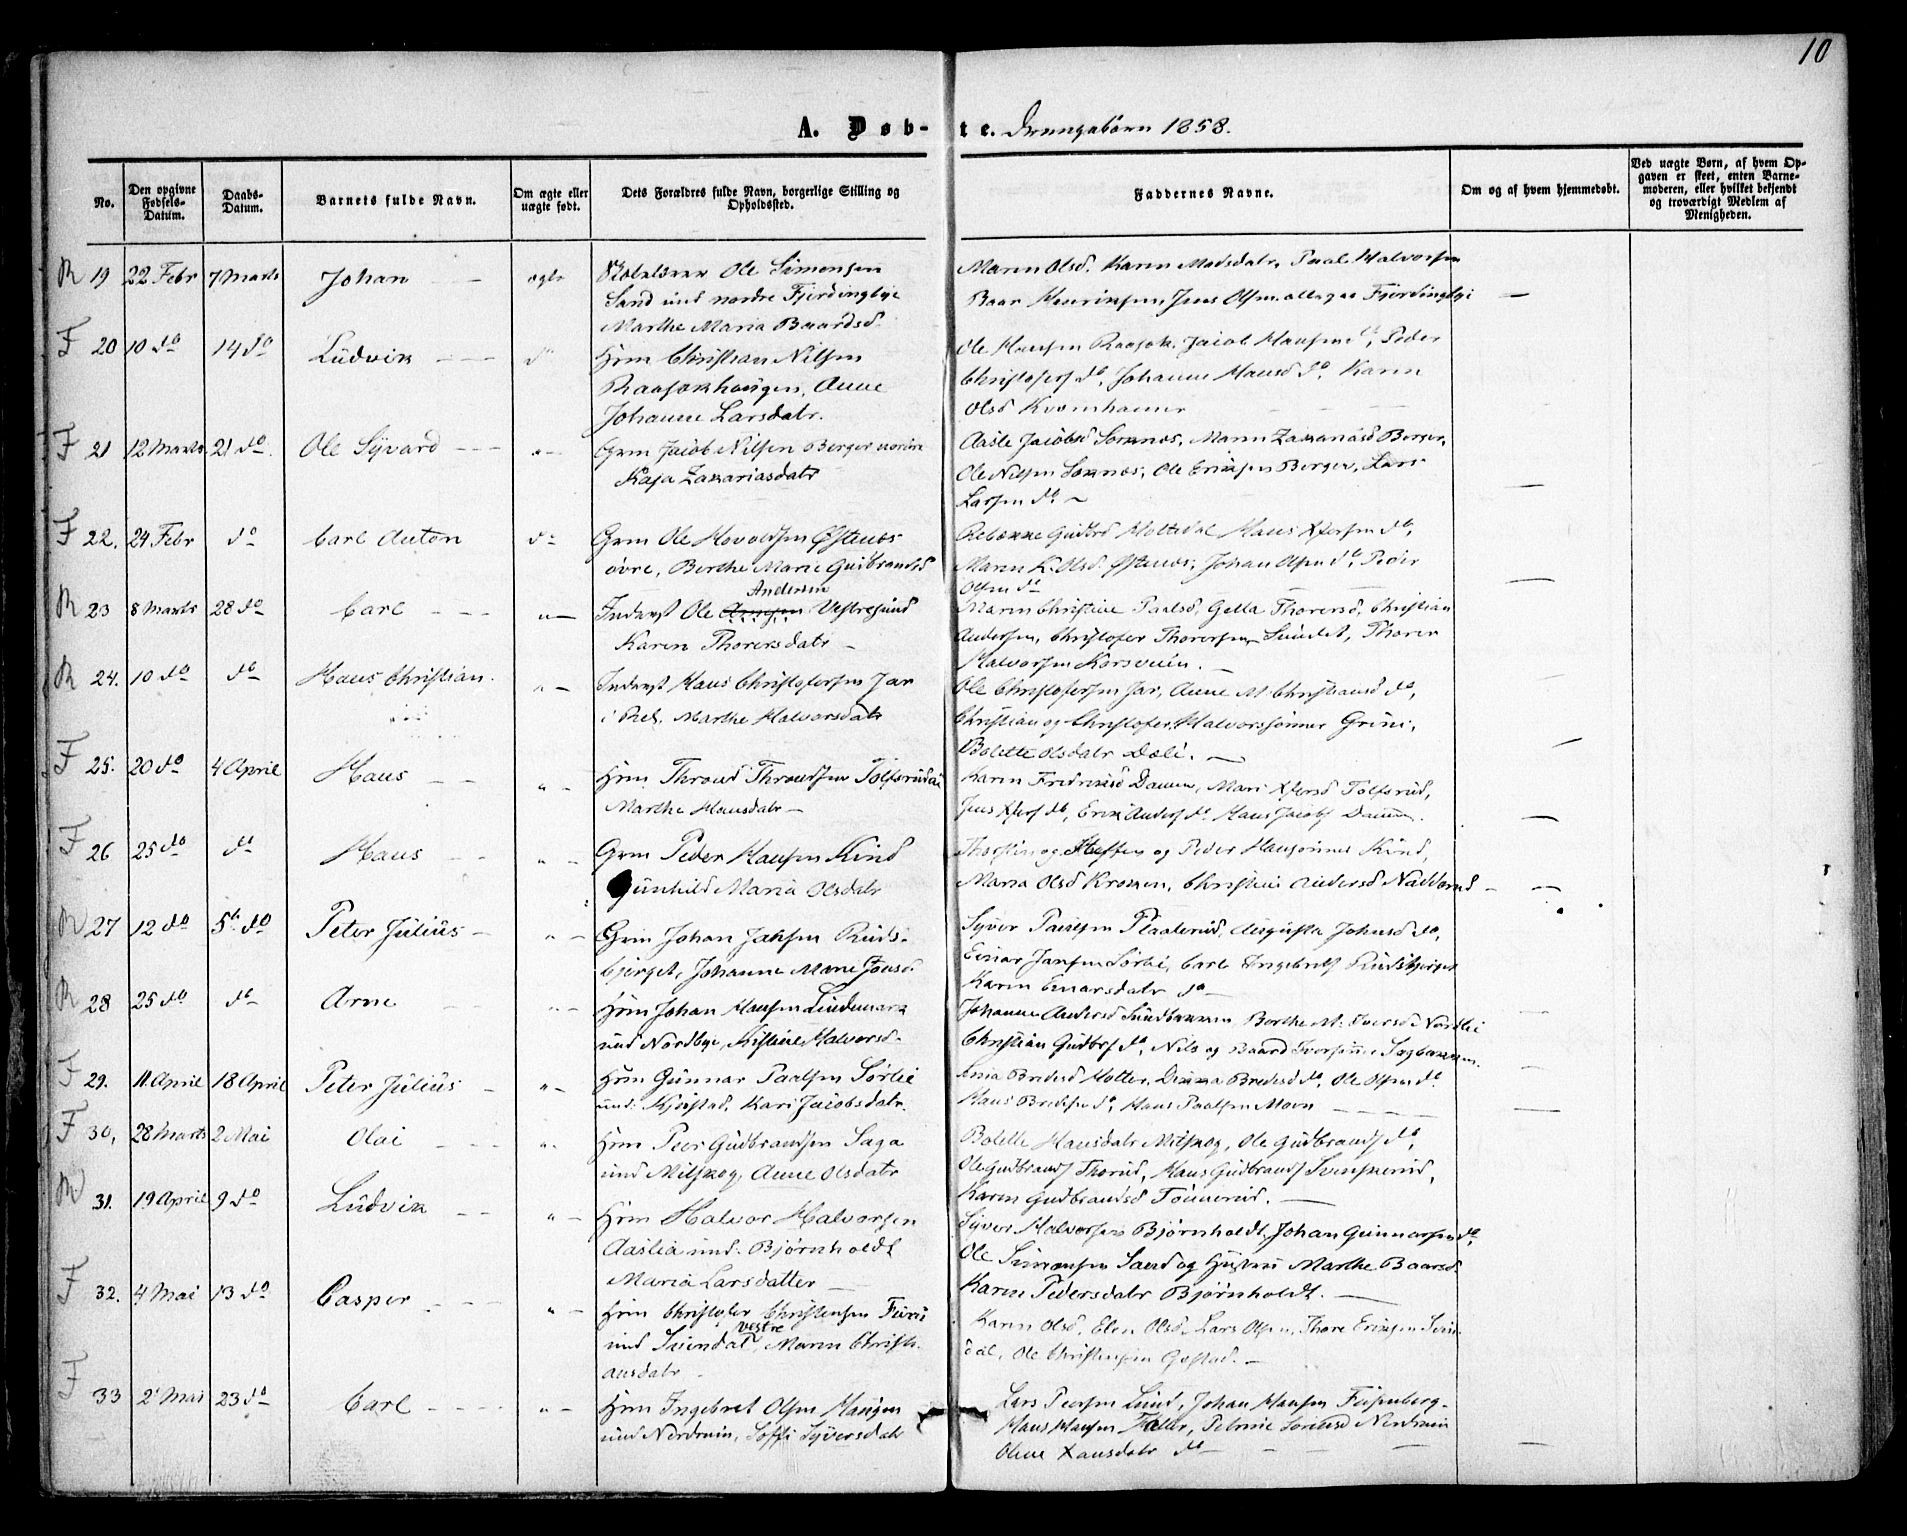 10
A. Døb- te. Drengebørn 1858.
No. Den opgivne Fødsels-Datum. Daabs-Datum. Barnets fulde Navn. Om ægte eller uægte født. Dets Forældres fulde Navn, borgerlige Stilling og Opholdssted. Faddernes Navne. Om og af hvem hjemmedøbt. Ved uægte Børn, af hvem Opgaven er skeet, enten Barnemoderen, eller hvilket bekjendt og troværdigt Medlem af Menigheden.
R 19 22 Febr 7 Marts Johan ægte Ole Simensen
Sand und nordre Fjerdingbye
Marthe Maria Baardsd.
Maren Olsd. Karen Madsdatr, Paal Halvorsen
Baar Henriksen, Jens Olsen alle paa Fjerdingbye
F 20 10 do 14 do Ludvik do Hrm Christian Nilsen
Raasokhaugen, Anne
Johanne Larsdatr.
Ole Hansen Raasok. Jacob Hansen do, Peder
Christofers do, Johanne Hansd do, Karen
Olsd Kværnhaner
F 21 12 Marts 21 do Ole Syvard Grm Jacob Nilsen Berger nordre
Kaja Zakariasdatr
Aasle Jacobsd Somnæs, Maren Zakariasd Berger,
Ole Nilsen Somnæs, Ole Eriksen Berger, Lars
Larsen do
F 22. 24 Febr do Carl Anton do Grm Ole Hovoldsen Østenæs
øvre, Berthe Marie Gulbrandsd
Rebekke Gulbrd Holtedal Hans Xfersen do,
Maren K. Olsd. Østenæs, Johan Olsen do, Peder
Olsen do
R 23 8 Marts 28 do Carl Inderst Ole Andersen Vestresund
Karen Thorersdatr
Maren Christine Paalsd, Golla Thorersd, Christian
Andersen, Christofer Thorersen Sundet, Thorer
Halvorsen Korsveien.
R 24. 10 do do Hans Christian. Inderst Hans Christofersen Jar
Marthe Halvorsdatr
Ole Christofersen Jar, Anne M. Christiansd do,
Christian og Christofer Halvorssønner Grini,
Bolette Olsdatr Dæli.
F 25. 20 do 4 April Hans Hrm Thrond Throndsen Tolfsrudeie
Marthe Hansdatr
Karen Fredriksd Damen, Mari Xfersd Tolfsrud,
Jens Xfers do, Erik Anders do Hans Jacobs Damen.
F 26 25 do do Hans Grm Peder Hansen Kind
Gunhild Maria Olsdatr
Thorsten og Steffen og Peder Hansønner Kind,
Maria Olsd Kroken, Christine Andersd
R 27 12 do 5te do Peter Julius Grm Johan Jahsen Ruds-
bjerget, Johanne Marie Jonsd.
Syver Paulsen Plaaterud, Augusta Johnsd do,
Einar Jansen Sørlie, Carl Ingebrets Rudsbjerget
Karen Einarsdatr do
R 28 25 do do Arne Hrm Johan Hansen Lindemark
und Nordbye, Kistine Halvorsd.
Johanne Andersd Sundbakken, Berthe M. Iversd Nordbie
Christian Gulbrs do, Nils og Baard Iversønner Sagbakken.
F 29. 11 April 18 April Peter Julius Hrm Gunnar Paalsen Sørlie
und: Kjølstad, Kari Jacobsdatr.
Bredesd Holter, Dikka Bredesd do, Ole Olsen do
Hans Bredesen do, Hans Paalsen Moen
F 30, 28 Marts 2 Mai Olai Hrm Peer Gulbrandsen Saga
und Mitskog, Anne Olsdatr
Bolette Hansdatr Mitskog, Ole Gulbrands do,
Ole Gulbrands Thorud, Hans Gulbrands Svenskerud,
Karen Gulbrandsd Tønnerud.
R 31. 19 April 9 do Ludvik Hrm Halvor Halvorsen
Aaslia und: Bjørnholdt
Maria Larsdatter
Syver Halvorsen Bjørnholdt, Johan Gunnarsen do,
Ole Simensen Sand og Hustru Marthe Baarsd
Karen Pedersdatr Bjørnholdt.
F 32. 4 Mai 13 do Casper Hrm Christofer Christensen
und Svendal vestre, Maren Christi-
ansdatr
Karen Olsd, Elen Olsd, Lars Olsen, Thore Eriksen Sven-
dal, Ole Christensen Gostad.
F 33 2 Mai 23 do Carl Hrm Ingebret Olsen Haugen
und Nordrum, Soffi Syversdatr
Lars Peersen Lund, Johan Hansen
Hans Hansen Tøller, Petrine Sørensd Nordrum
Oline Hansdatr do